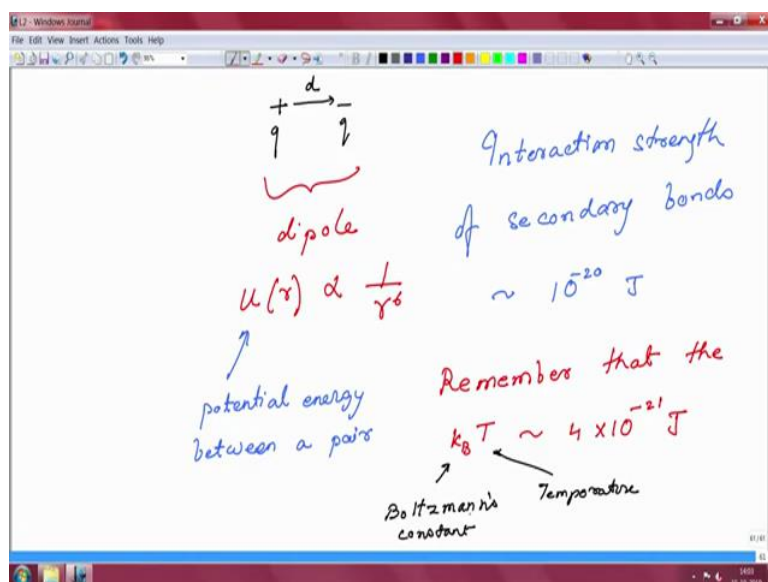 L2 - Windows Journal
File Edit View Insert Actions Tools Help
d
+ → −
q q
dipole
u(r) α 1/r⁶
potential energy
between a pair
Interaction strength
of secondary bonds
~ 10⁻²⁰ J
Remember that the
k_B T ~ 4 × 10⁻²¹ J
Boltzmann's
constant
Temperature
61/61
61